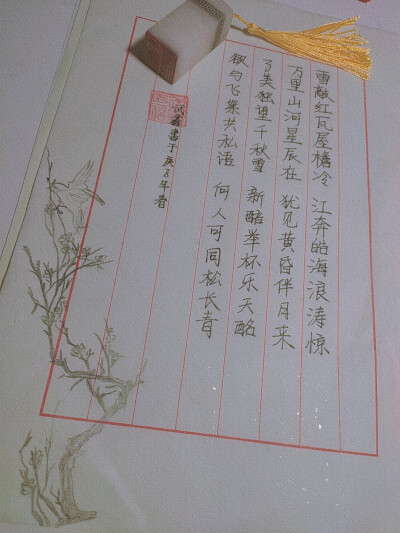 雪敲红瓦屋檐冷 江奔皓海浪涛惊
万里山河星辰在 犹见黄昏伴月来
子美独望千秋雪 新醅举杯乐天酩
欲与飞共私语 何人可同松长青
書于庚子年春